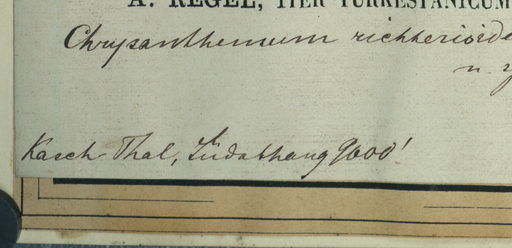 A. REGEL, ITER TURKESTANICUM
Chrysanthemum richterioide
n.
Kasch Thal, Südabhang 9000'